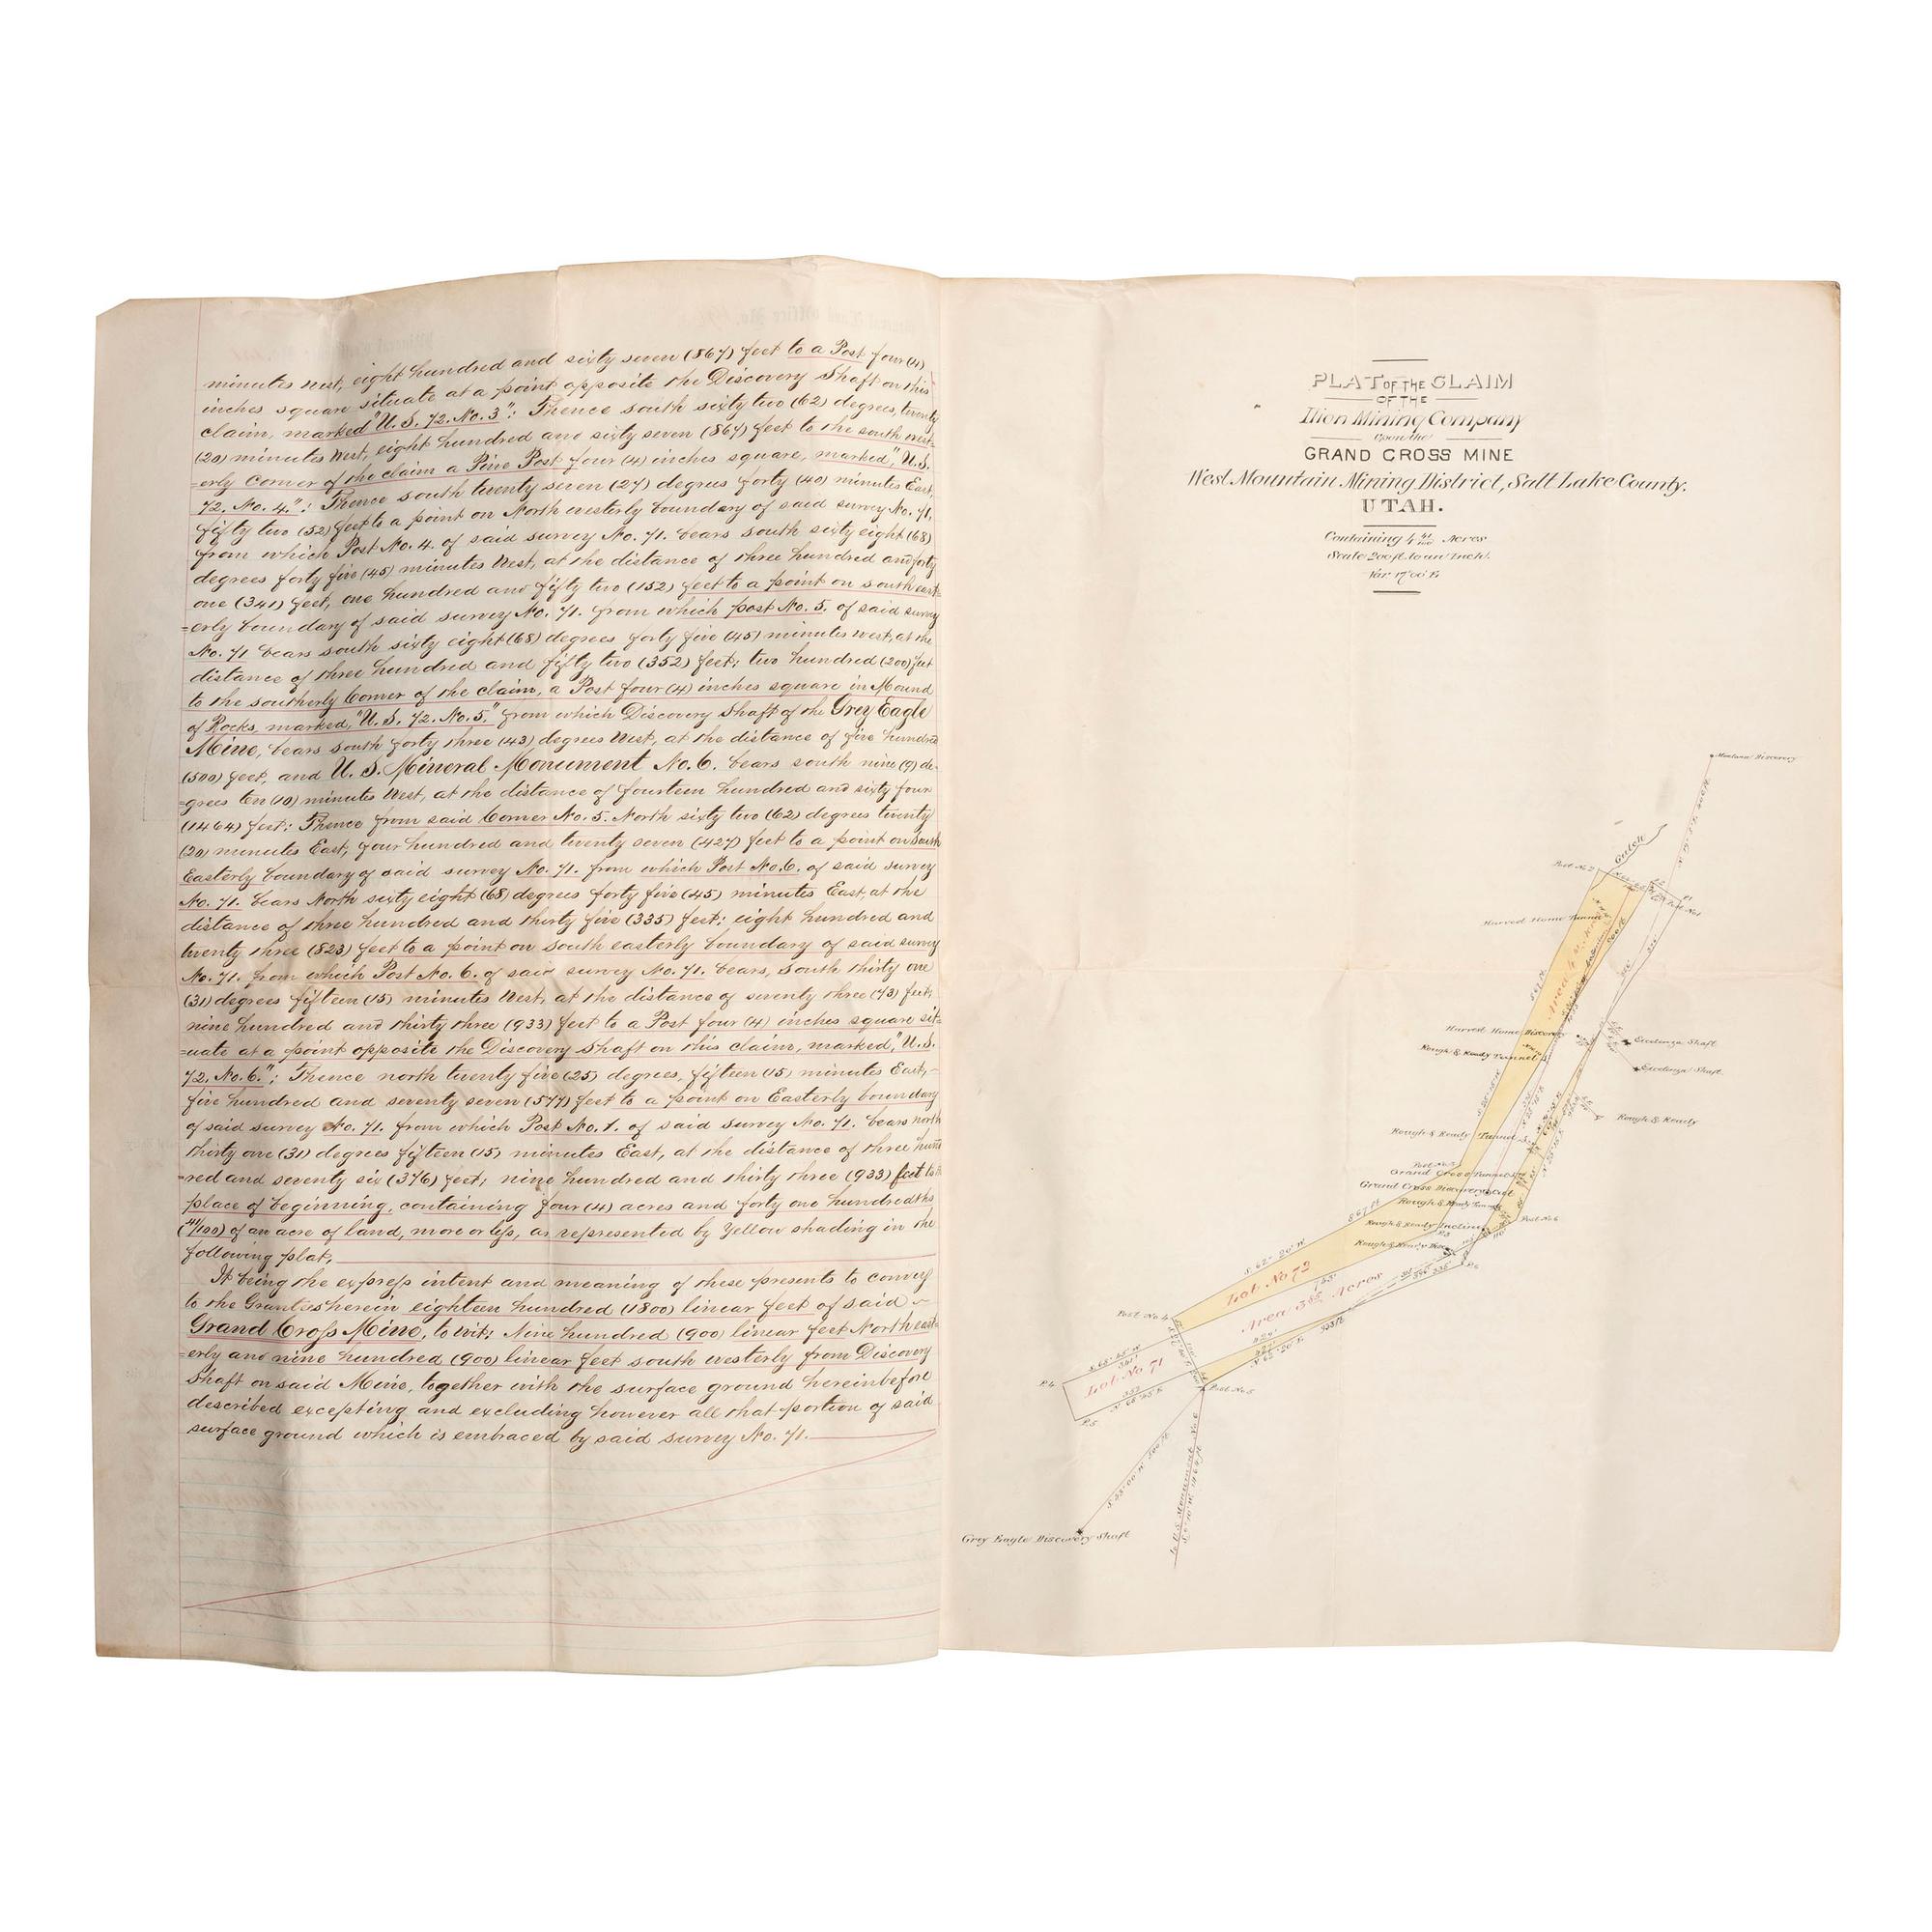 minutes West, eight hundred and sixty seven (867) feet to a Post four (4)
inches square situate at a point opposite the Discovery Shaft on this
claim, marked "U.S. 72. No. 3": Thence south sixty two (62) degrees, twenty
(20) minutes West, eight hundred and sixty seven (867) feet to the south west=
=erly Corner of the claim a Pine Post four (4) inches square, marked, "U.S.
72. No. 4.": Thence south twenty seven (27) degrees forty (40) minutes East,
fifty two (52) feet to a point on North westerly boundary of said survey No. 71,
from which Post No. 4. of said survey No. 71. bears south sixty eight (68)
degrees forty five (45) minutes West, at the distance of three hundred and forty
one (341) feet, one hundred and fifty two (152) feet to a point on south east=
=erly boundary of said survey No. 71. from which post No. 5. of said survey
No. 71 bears south sixty eight (68) degrees forty five (45) minutes west, at the
distance of three hundred and fifty two (352) feet; two hundred (200) feet
to the southerly Corner of the claim, a Post four (4) inches square in Mound
of Rocks, marked, "U.S. 72. No. 5." from which Discovery Shaft of the Grey Eagle
Mine, bears south forty three (43) degrees West, at the distance of five hundred
(500) feet, and U.S. Mineral Monument No. 6. bears south nine (9) de-
=grees ten (10) minutes West, at the distance of fourteen hundred and sixty four
(1464) feet: Thence from said Corner No. 5. North sixty two (62) degrees twenty
(20) minutes East, four hundred and twenty seven (427) feet to a point on South
Easterly boundary of said survey No. 71. from which Post No. 6. of said survey
No. 71. bears North sixty eight (68) degrees forty five (45) minutes East, at the
distance of three hundred and thirty five (335) feet; eight hundred and
twenty three (823) feet to a point on south easterly boundary of said survey
No. 71. from which Post No. 6. of said survey No. 71. bears, South thirty one
(31) degrees fifteen (15) minutes West, at the distance of seventy three (73) feet,
nine hundred and thirty three (933) feet to a Post four (4) inches square sit=
=uate at a point opposite the Discovery Shaft on this claim, marked, "U.S.
72. No. 6.": Thence north twenty five (25) degrees, fifteen (15) minutes East,=
five hundred and seventy seven (577) feet to a point on Easterly boundary
of said survey No. 71. from which Post No. 1. of said survey No. 71. bears north
thirty one (31) degrees fifteen (15) minutes East, at the distance of three hund
=red and seventy six (376) feet; nine hundred and thirty three (933) feet to the
place of beginning, containing four (4) acres and forty one hundredths
(41/100) of an acre of land, more or less, as represented by Yellow shading in the
following plat,
It being the express intent and meaning of these presents to convey
to the Grantees herein eighteen hundred (1800) linear feet of said
Grand Cross Mine, to wit; Nine hundred (900) linear feet North east=
=erly and nine hundred (900) linear feet south westerly from Discovery
Shaft on said Mine, together with the surface ground hereinbefore
described excepting and excluding however all that portion of said
surface ground which is embraced by said survey No. 71.
PLAT OF THE CLAIM
OF THE
Ilion Mining Company
Upon the
GRAND CROSS MINE
West Mountain Mining District, Salt Lake County.
UTAH.
Containing 4 41/100 Acres
Scale 200 ft. to an Inch.
Var 17°00' E.
Montana Discovery
Gulch
Post No 2
Post No 1
Harvest Home Tunnel
867 ft.
Harvest Home Discovery
Rough & Ready Tunnel
Excelenza Shaft
Excelenza Shaft
Rough & Ready
Rough & Ready Tunnel
Post No. 3
Grand Cross Tunnel
Grand Cross Discovery
Rough & Ready Tunnel
Post No. 6
867 ft
Rough & Ready Incline
Rough & Ready Disc.
S. 62° 20' W.
Lot No 72
Area 3 Acres
Post No 4
S. 68° 45' W
341'
427'
N. 62° 20' E.
933 ft
P. 4
Lot No 71
352
N. 68° 45' E
P. 5
Post No. 5
S. 43° 00' W. 500 ft.
To U.S. Monument No. 6
S. 9° 10' W. 1464 ft
Grey Eagle Discovery Shaft